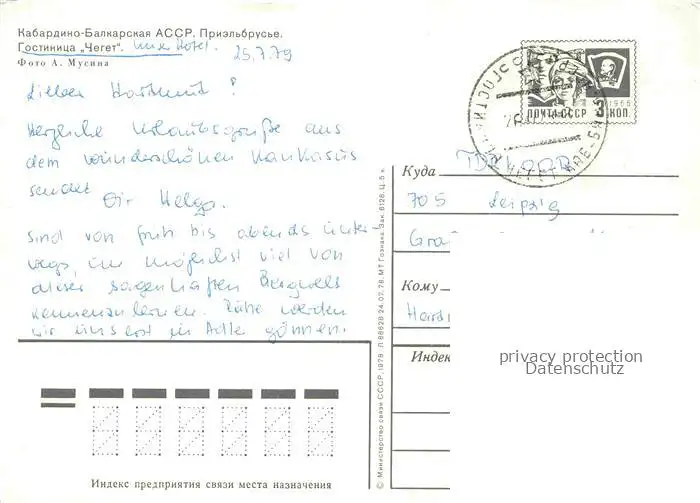 Кабардино-Балкарская АССР. Приэльбрусье.
Гостиница „Чегет". unser Hotel. 25.7.79
Фото А. Мусина
Lieber Hartmut!
Herzliche Urlaubsgrüße aus
dem wunderschönen Kaukasus
sendet Dir Helga.
Sind von früh bis abends unter-
wegs, um möglichst viel von
dieser sagenhaften Bergwelt
kennenzulernen. Ruhe werden
wir uns erst in Adler gönnen.
Индекс предприятия связи места назначения
© Министерство связи СССР, 1978 Л 88628 24.07.78 МТ Гознака. Зак. 8128. Ц. 5 к.
1966
ПОЧТА СССР КОП.
Куда
705 Leipzig
Кому
Индек
privacy protection
Datenschutz